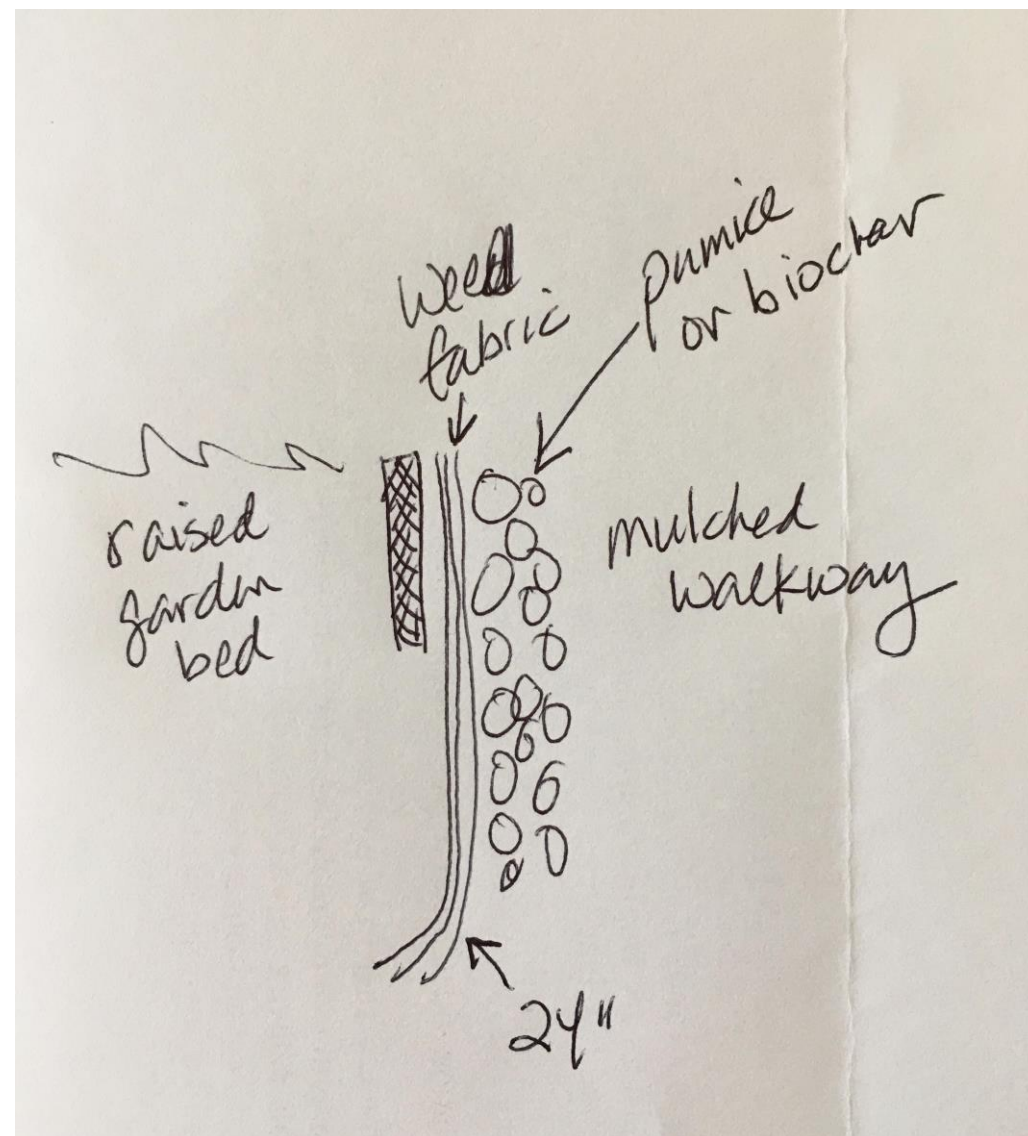 weed
fabric
pumice
or biochar
raised
garden
bed
mulched
walkway
24"